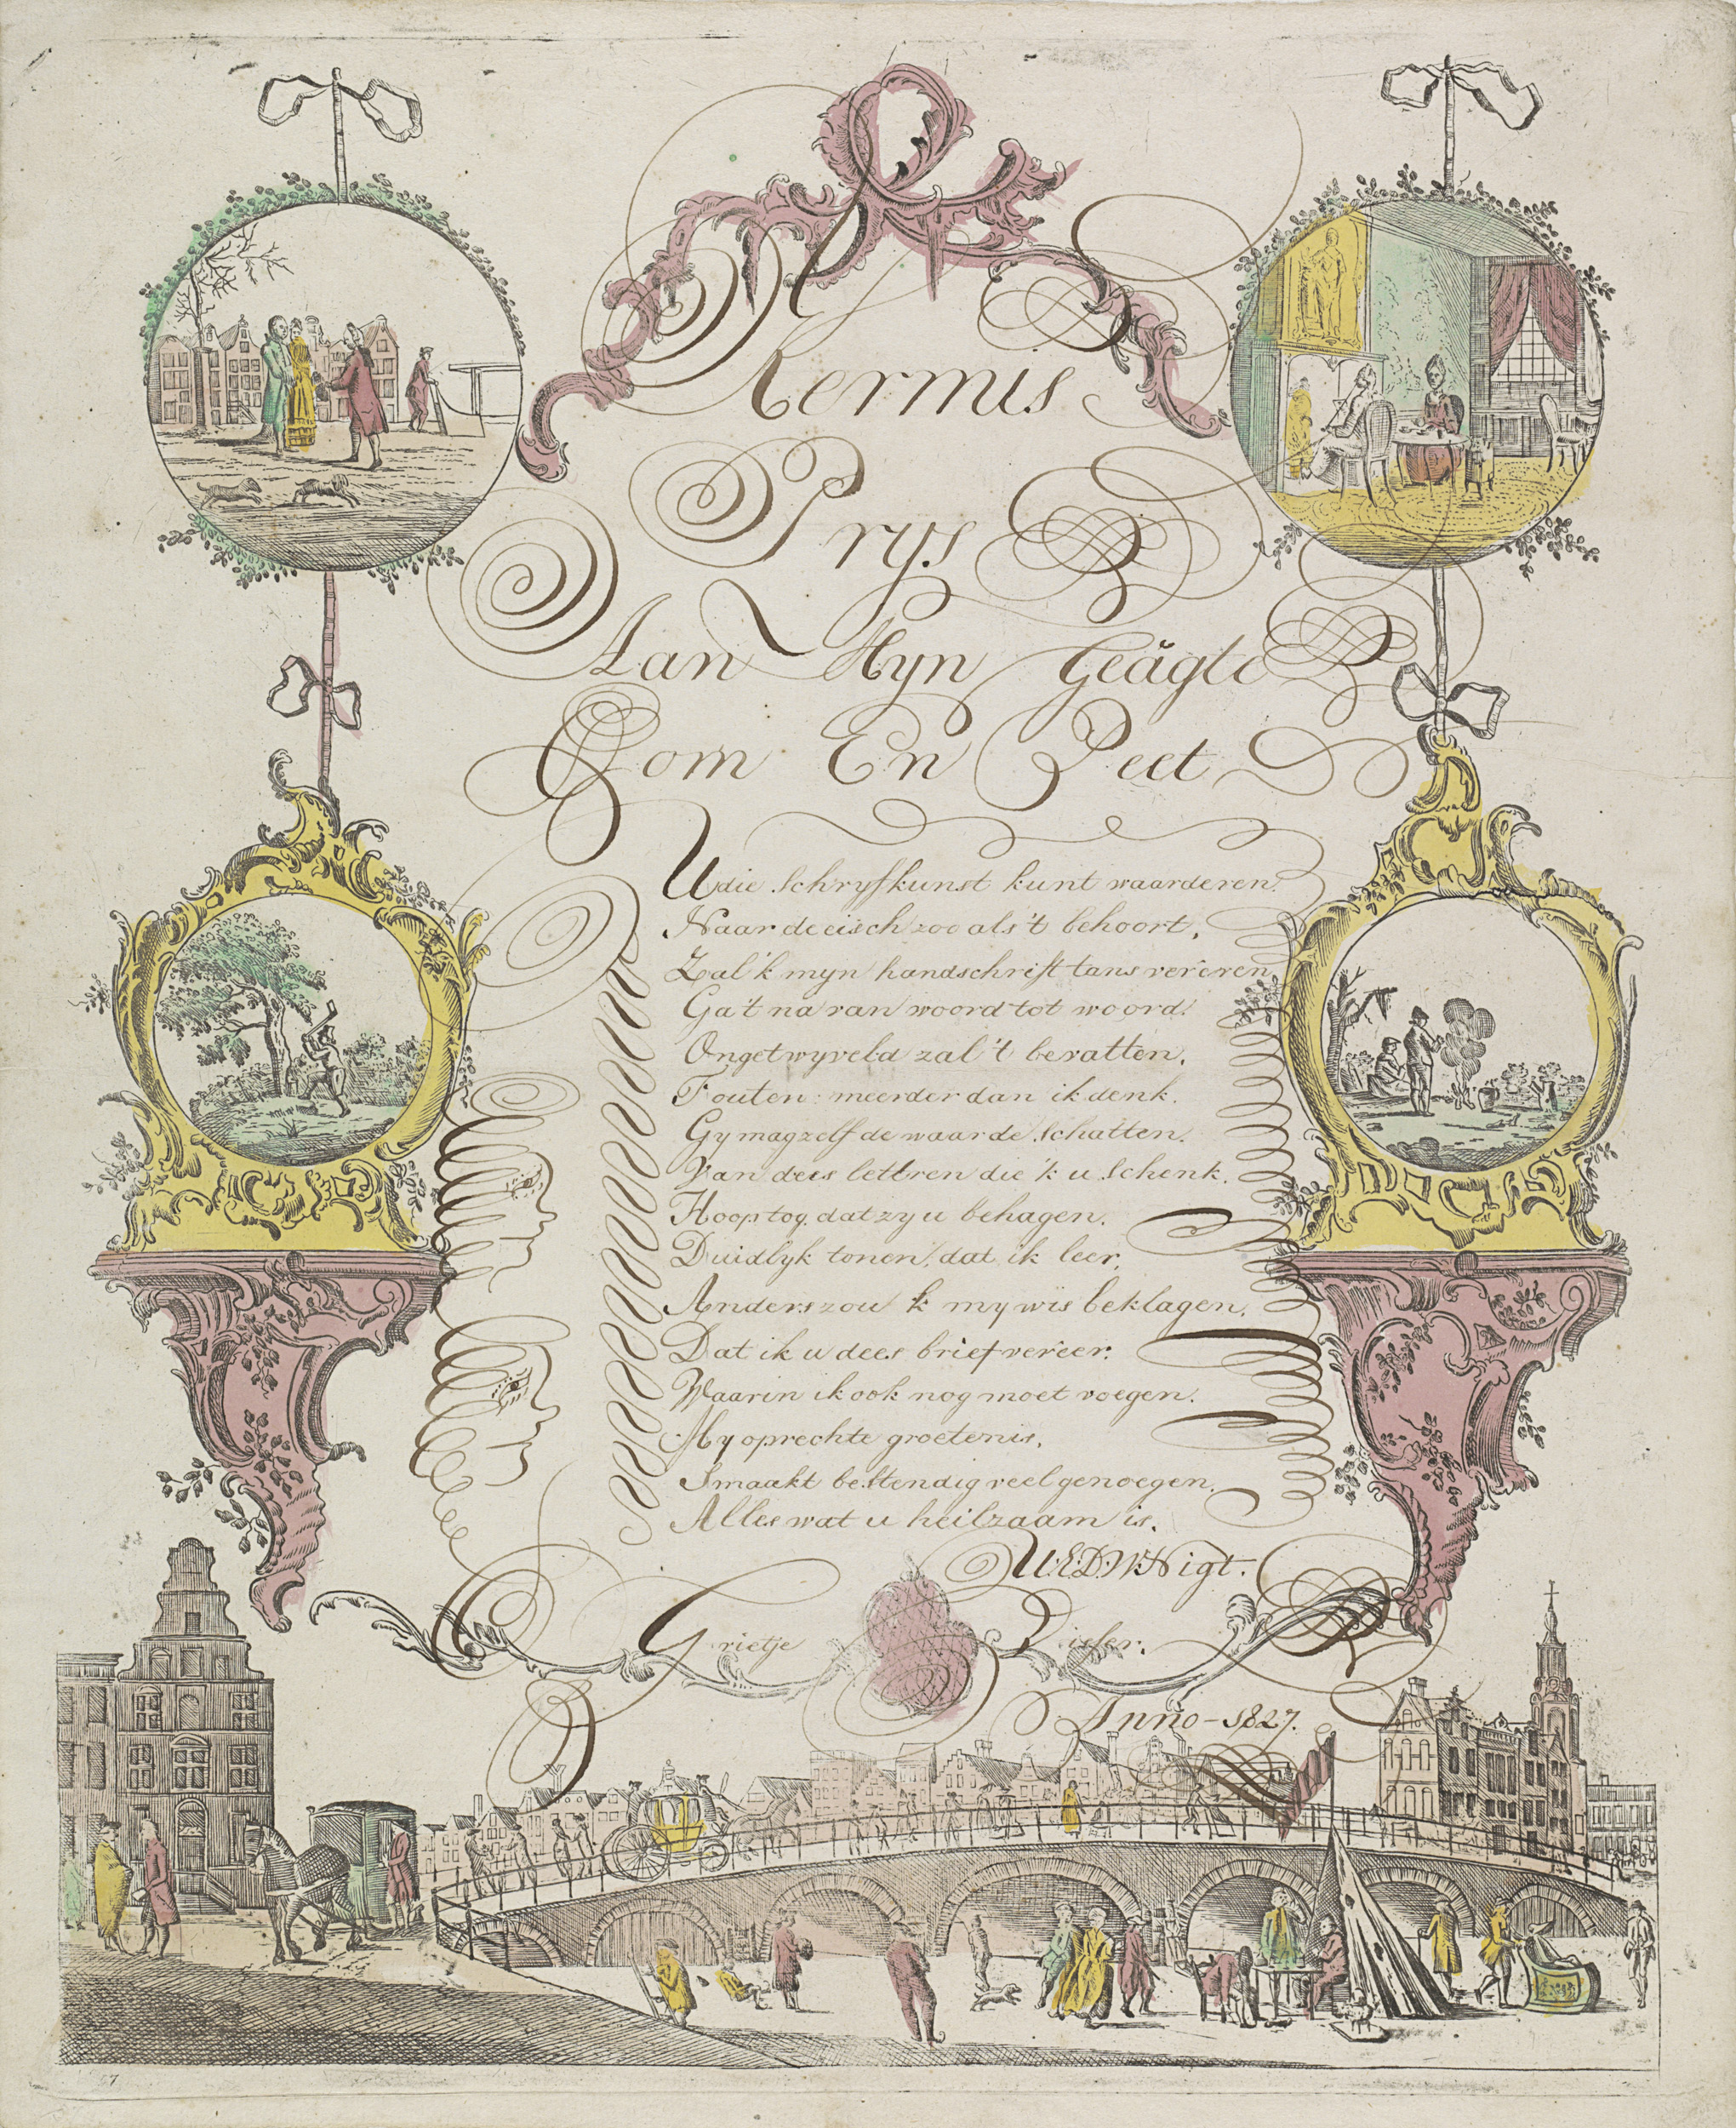 Kermis
Prys
Aan Myn Geägte
Oom En Peet
U die Schryfkunst kunt waarderen.
Naar de eisch zoo als 't behoort,
Zal 'k myn handschrift tans vereren,
Ga 't na van woord tot woord!
Ongetwyveld zal 't bevatten,
Fouten: meerder dan ik denk.
Gy mag zelf de waarde Schatten.
Van dees lettren die 'k u Schenk.
Hoop tog, dat zy u behagen,
Duidlyk tonen, dat ik leer,
Anders zou 'k my wis beklagen,
Dat ik u dees brief vereer.
Waarin ik ook nog moet voegen.
My oprechte groetenis,
Smaakt bestendig veel genoegen,
Alles wat u heilzaam is.
U:E:D:W:Nigt.
Grietje
Anno-1827.